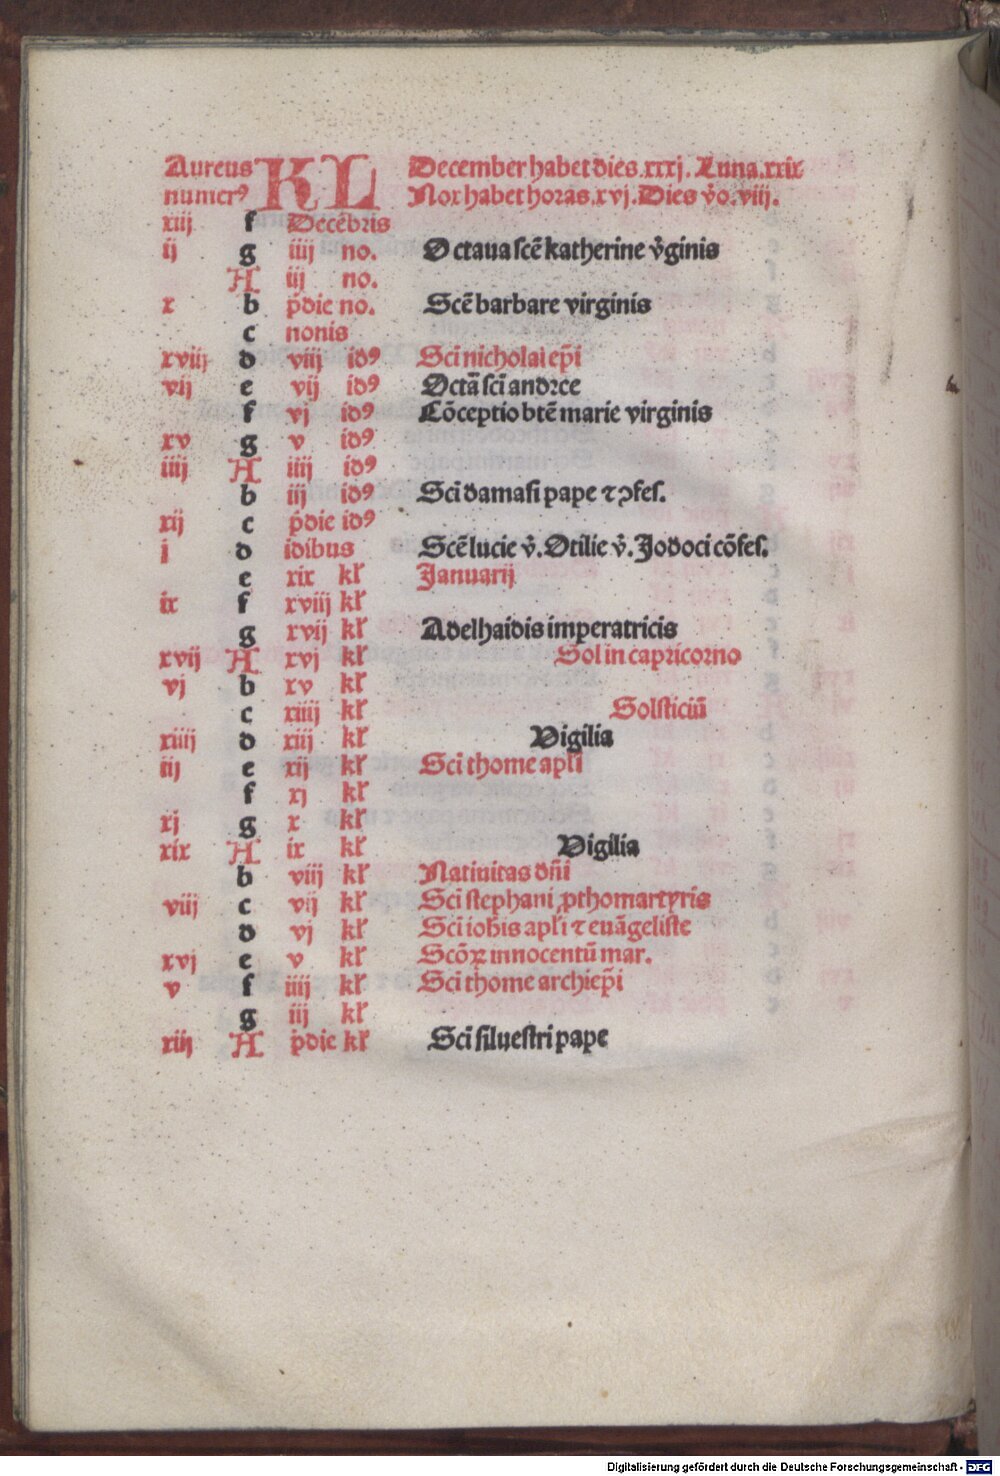 Aureus KL December habet dies .xxxj. Luna .xxix
numerꝰ Nox habet horas .xvj. Dies v̊o .viij.
xiij f Decēbris
ij g iiij no. Octaua scē katherine v̊ginis
A iij no.
x b p̍die no. Scē barbare virginis
c nonis
xviij d viij idꝰ Sci nicholai ep̄i
vij e vij idꝰ Octā sci andree
f vj idꝰ Cōceptio btē marie virginis
xv g v idꝰ
iiij A iiij idꝰ
b iij idꝰ Sci damasi pape ⁊ ꝯfes.
xij c p̍die idꝰ
j d idibus Scē lucie v̊. Otilie v̊. Jodoci cōfes.
e xix kl̄ Januarij
ix f xviij kl̄
g xvij kl̄ Adelhaidis imperatricis
xvij A xvj kl̄ Sol in capricorno
vj b xv kl̄
c xiiij kl̄ Solsticiū
xiiij d xiij kl̄ Vigilia
iij e xij kl̄ Sci thome apl̄i
f xj kl̄
xj g x kl̄
xix A ix kl̄ Vigilia
b viij kl̄ Natiuitas dn̄i
viij c vij kl̄ Sci stephani ꝓthomartyris
d vj kl̄ Sci ioh̄is apl̄i ⁊ euāgeliste
xvj e v kl̄ Scōꝝ innocentū mar.
v f iiij kl̄ Sci thome archiep̄i
g iij kl̄
xiij A p̍die kl̄ Sci siluestri pape
Digitalisierung gefördert durch die Deutsche Forschungsgemeinschaft - DFG